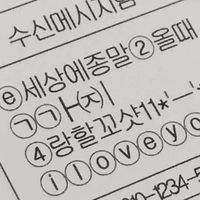 수신메시지함
ⓔ세상에종말②올때
ㄱㄱㅏ(ㅈ)ㅣ
④랑할꼬샷11*
ⓘⓛⓞⓥⓔⓨⓞ
010-1234-5